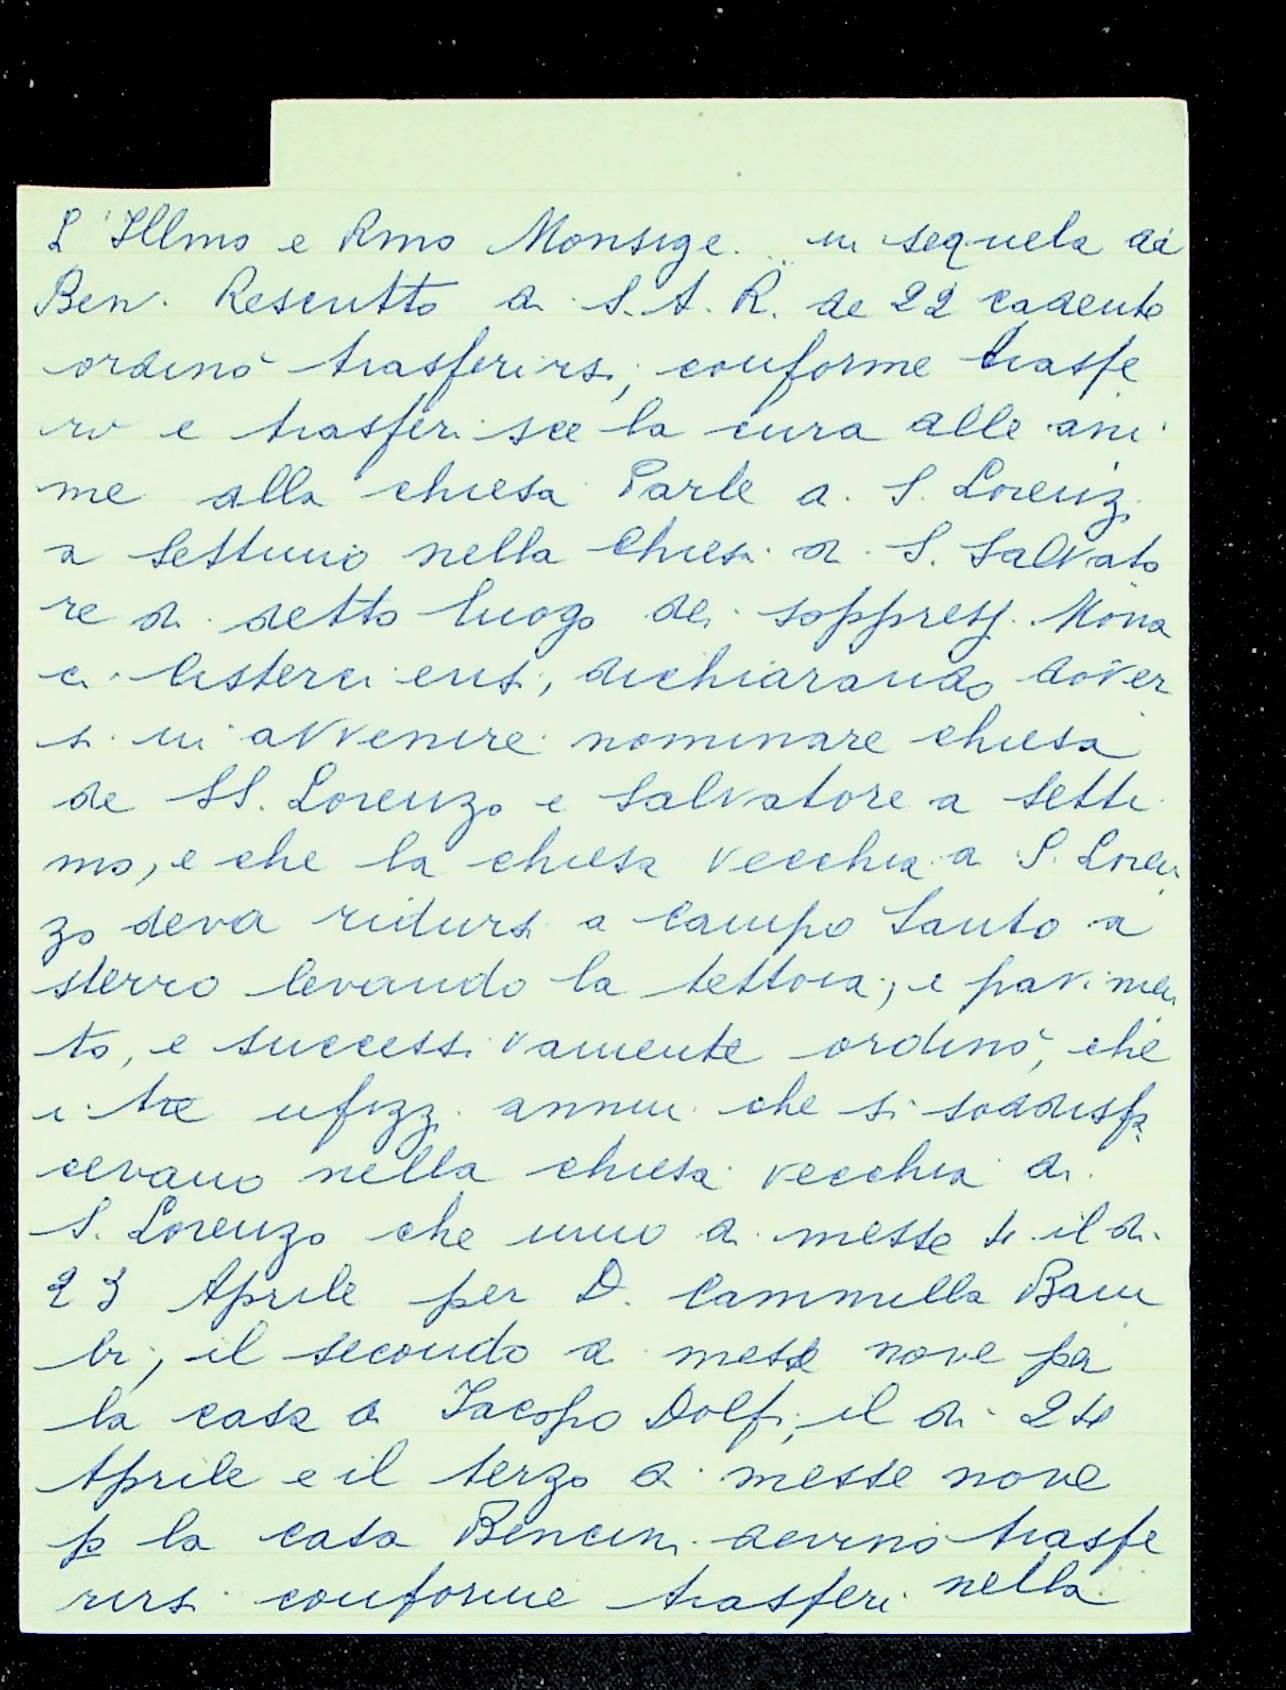 L'Illmo e Rmo Monsige. in sequela di
Ben. Rescritto di S. A. R. de 22 cadente
ordinò trasferirsi, conforme trasfe
rì e trasferisce la cura alle ani
me alla chiesa Parle a S. Lorenz.
a Settimo nella Chiesa di S. Salvato
re di detto luogo dei soppress. Mona
ci Cisterciensi, dichiarando dover
si in avvenire nominare chiesa
de SS. Lorenzo e Salvatore a Setti
mo, e che la chiesa vecchia a S. Loren
zo deva ridursi a Campo Santo a
sterro levando la tettoia, e pavimen
to, e successivamente ordinò, che
i tre ufizzi annui che si soddisfa
cevano nella chiesa vecchia di
S. Lorenzo che uno di messe 4 il di
23 Aprile per D. Cammilla Bam
bi, il secondo di messe nove per
la casa di Jacopo Dolfi, il di 24
Aprile e il terzo di messe nove
p la casa Bencini devino trasfe
rirsi conforme trasferi nella